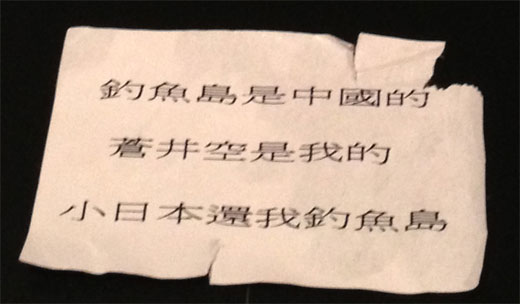 釣魚島是中國的
蒼井空是我的
小日本還我釣魚島